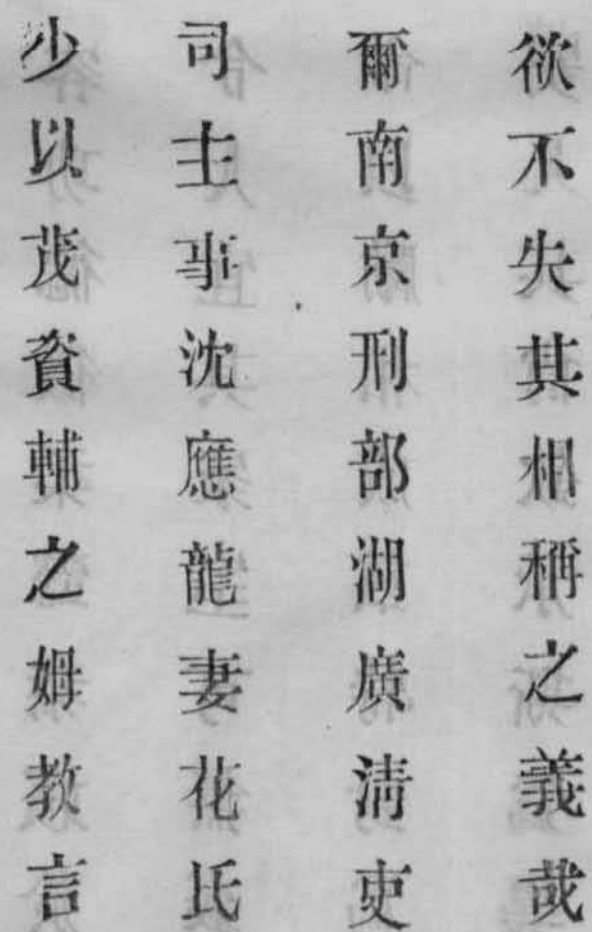 欲不失其相稱之義哉
爾南京刑部湖廣清吏
司主事沈應龍妻花氏
少以茂資輔之姆教言